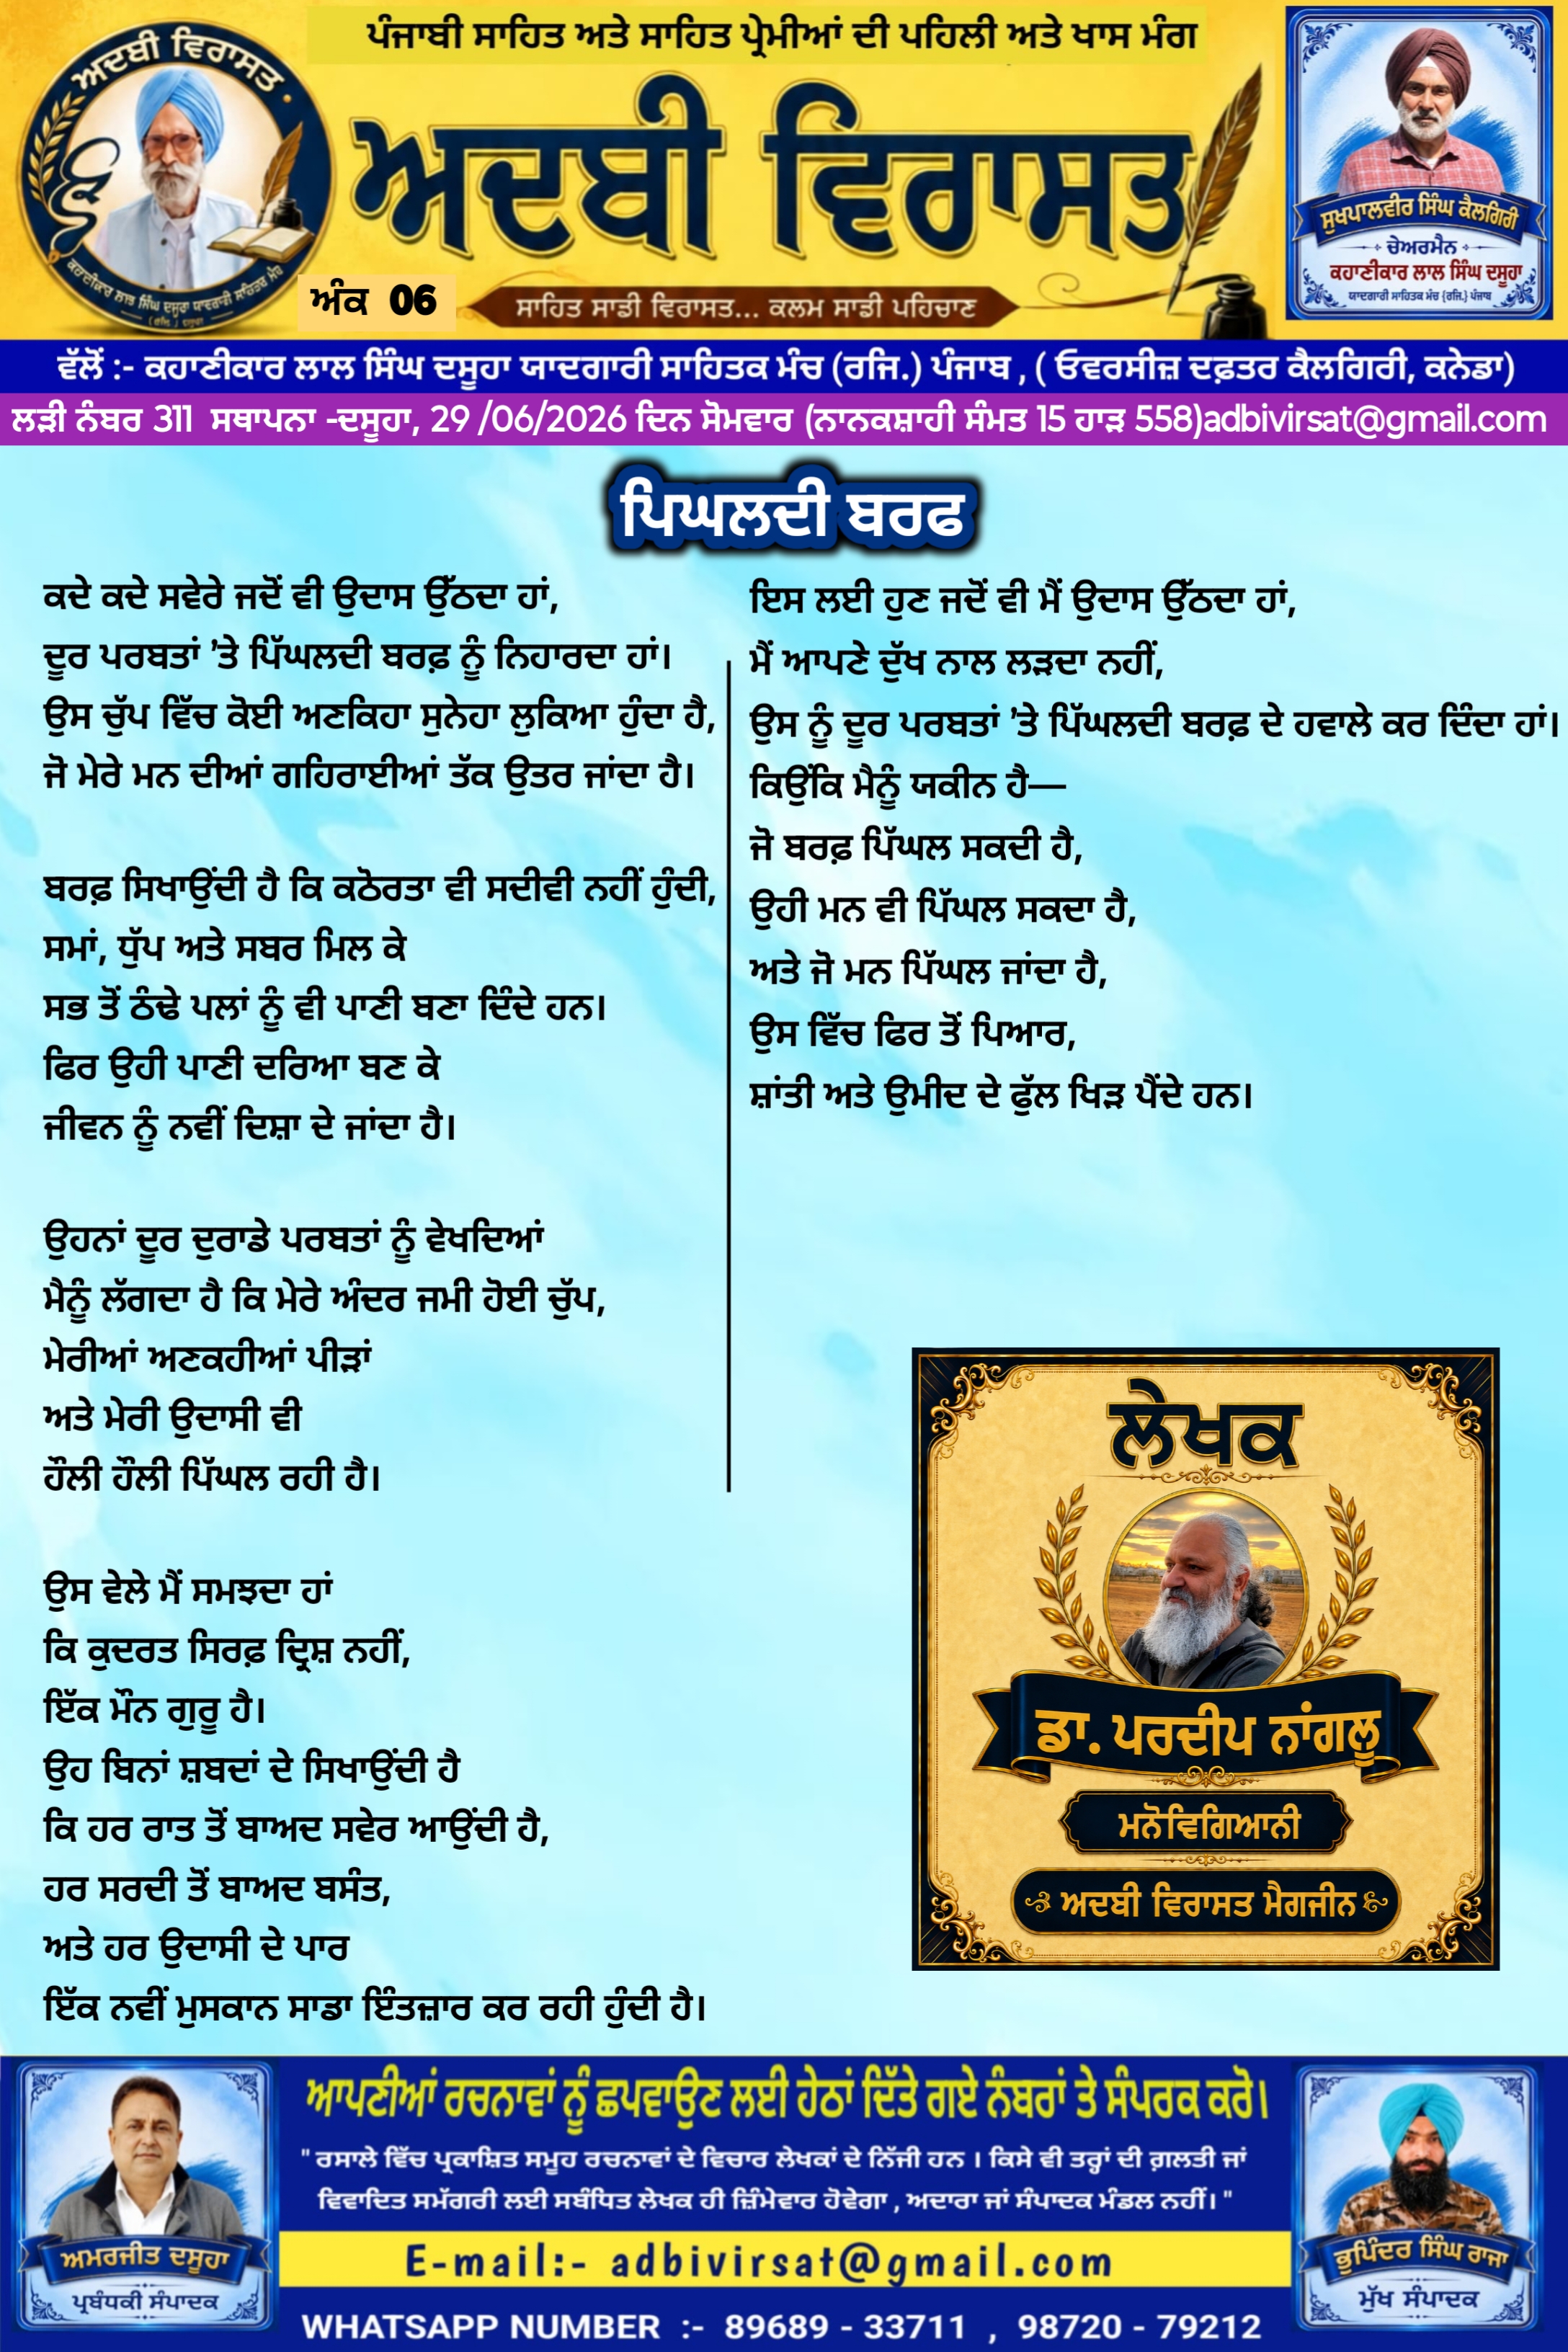 ਪੰਜਾਬੀ ਸਾਹਿਤ ਅਤੇ ਸਾਹਿਤ ਪ੍ਰੇਮੀਆਂ ਦੀ ਪਹਿਲੀ ਅਤੇ ਖਾਸ ਮੰਗ
ਅਦਬੀ ਵਿਰਾਸਤ
ਕਹਾਣੀਕਾਰ ਲਾਲ ਸਿੰਘ ਦਸੂਹਾ ਯਾਦਗਾਰੀ ਸਾਹਿਤਕ ਮੰਚ
(ਰਜਿ.) ਦਸੂਹਾ
ਅਦਬੀ ਵਿਰਾਸਤ
ਅੰਕ 06
ਸਾਹਿਤ ਸਾਡੀ ਵਿਰਾਸਤ... ਕਲਮ ਸਾਡੀ ਪਹਿਚਾਣ
ਸੁਖਪਾਲਵੀਰ ਸਿੰਘ ਕੈਲਗਿਰੀ
ਚੇਅਰਮੈਨ
ਕਹਾਣੀਕਾਰ ਲਾਲ ਸਿੰਘ ਦਸੂਹਾ
ਯਾਦਗਾਰੀ ਸਾਹਿਤਕ ਮੰਚ {ਰਜਿ.} ਪੰਜਾਬ
ਵੱਲੋਂ :- ਕਹਾਣੀਕਾਰ ਲਾਲ ਸਿੰਘ ਦਸੂਹਾ ਯਾਦਗਾਰੀ ਸਾਹਿਤਕ ਮੰਚ (ਰਜਿ.) ਪੰਜਾਬ , ( ਓਵਰਸੀਜ਼ ਦਫ਼ਤਰ ਕੈਲਗਿਰੀ, ਕਨੇਡਾ)
ਲੜੀ ਨੰਬਰ 311 ਸਥਾਪਨਾ -ਦਸੂਹਾ, 29 /06/2026 ਦਿਨ ਸੋਮਵਾਰ (ਨਾਨਕਸ਼ਾਹੀ ਸੰਮਤ 15 ਹਾੜ 558)adbivirsat@gmail.com
ਪਿਘਲਦੀ ਬਰਫ
ਕਦੇ ਕਦੇ ਸਵੇਰੇ ਜਦੋਂ ਵੀ ਉਦਾਸ ਉੱਠਦਾ ਹਾਂ,
ਦੂਰ ਪਰਬਤਾਂ ’ਤੇ ਪਿੱਘਲਦੀ ਬਰਫ਼ ਨੂੰ ਨਿਹਾਰਦਾ ਹਾਂ।
ਉਸ ਚੁੱਪ ਵਿੱਚ ਕੋਈ ਅਣਕਿਹਾ ਸੁਨੇਹਾ ਲੁਕਿਆ ਹੁੰਦਾ ਹੈ,
ਜੋ ਮੇਰੇ ਮਨ ਦੀਆਂ ਗਹਿਰਾਈਆਂ ਤੱਕ ਉਤਰ ਜਾਂਦਾ ਹੈ।
ਬਰਫ਼ ਸਿਖਾਉਂਦੀ ਹੈ ਕਿ ਕਠੋਰਤਾ ਵੀ ਸਦੀਵੀ ਨਹੀਂ ਹੁੰਦੀ,
ਸਮਾਂ, ਧੁੱਪ ਅਤੇ ਸਬਰ ਮਿਲ ਕੇ
ਸਭ ਤੋਂ ਠੰਢੇ ਪਲਾਂ ਨੂੰ ਵੀ ਪਾਣੀ ਬਣਾ ਦਿੰਦੇ ਹਨ।
ਫਿਰ ਉਹੀ ਪਾਣੀ ਦਰਿਆ ਬਣ ਕੇ
ਜੀਵਨ ਨੂੰ ਨਵੀਂ ਦਿਸ਼ਾ ਦੇ ਜਾਂਦਾ ਹੈ।
ਉਹਨਾਂ ਦੂਰ ਦੁਰਾਡੇ ਪਰਬਤਾਂ ਨੂੰ ਵੇਖਦਿਆਂ
ਮੈਨੂੰ ਲੱਗਦਾ ਹੈ ਕਿ ਮੇਰੇ ਅੰਦਰ ਜਮੀ ਹੋਈ ਚੁੱਪ,
ਮੇਰੀਆਂ ਅਣਕਹੀਆਂ ਪੀੜਾਂ
ਅਤੇ ਮੇਰੀ ਉਦਾਸੀ ਵੀ
ਹੌਲੀ ਹੌਲੀ ਪਿੱਘਲ ਰਹੀ ਹੈ।
ਉਸ ਵੇਲੇ ਮੈਂ ਸਮਝਦਾ ਹਾਂ
ਕਿ ਕੁਦਰਤ ਸਿਰਫ਼ ਦ੍ਰਿਸ਼ ਨਹੀਂ,
ਇੱਕ ਮੌਨ ਗੁਰੂ ਹੈ।
ਉਹ ਬਿਨਾਂ ਸ਼ਬਦਾਂ ਦੇ ਸਿਖਾਉਂਦੀ ਹੈ
ਕਿ ਹਰ ਰਾਤ ਤੋਂ ਬਾਅਦ ਸਵੇਰ ਆਉਂਦੀ ਹੈ,
ਹਰ ਸਰਦੀ ਤੋਂ ਬਾਅਦ ਬਸੰਤ,
ਅਤੇ ਹਰ ਉਦਾਸੀ ਦੇ ਪਾਰ
ਇੱਕ ਨਵੀਂ ਮੁਸਕਾਨ ਸਾਡਾ ਇੰਤਜ਼ਾਰ ਕਰ ਰਹੀ ਹੁੰਦੀ ਹੈ।
ਇਸ ਲਈ ਹੁਣ ਜਦੋਂ ਵੀ ਮੈਂ ਉਦਾਸ ਉੱਠਦਾ ਹਾਂ,
ਮੈਂ ਆਪਣੇ ਦੁੱਖ ਨਾਲ ਲੜਦਾ ਨਹੀਂ,
ਉਸ ਨੂੰ ਦੂਰ ਪਰਬਤਾਂ ’ਤੇ ਪਿੱਘਲਦੀ ਬਰਫ਼ ਦੇ ਹਵਾਲੇ ਕਰ ਦਿੰਦਾ ਹਾਂ।
ਕਿਉਂਕਿ ਮੈਨੂੰ ਯਕੀਨ ਹੈ—
ਜੋ ਬਰਫ਼ ਪਿੱਘਲ ਸਕਦੀ ਹੈ,
ਉਹੀ ਮਨ ਵੀ ਪਿੱਘਲ ਸਕਦਾ ਹੈ,
ਅਤੇ ਜੋ ਮਨ ਪਿੱਘਲ ਜਾਂਦਾ ਹੈ,
ਉਸ ਵਿੱਚ ਫਿਰ ਤੋਂ ਪਿਆਰ,
ਸ਼ਾਂਤੀ ਅਤੇ ਉਮੀਦ ਦੇ ਫੁੱਲ ਖਿੜ ਪੈਂਦੇ ਹਨ।
ਲੇਖਕ
ਡਾ. ਪਰਦੀਪ ਨਾਂਗਲੂ
ਮਨੋਵਿਗਿਆਨੀ
ਅਦਬੀ ਵਿਰਾਸਤ ਮੈਗਜੀਨ
ਆਪਣੀਆਂ ਰਚਨਾਵਾਂ ਨੂੰ ਛਪਵਾਉਣ ਲਈ ਹੇਠਾਂ ਦਿੱਤੇ ਗਏ ਨੰਬਰਾਂ ਤੇ ਸੰਪਰਕ ਕਰੋ।
" ਰਸਾਲੇ ਵਿੱਚ ਪ੍ਰਕਾਸ਼ਿਤ ਸਮੂਹ ਰਚਨਾਵਾਂ ਦੇ ਵਿਚਾਰ ਲੇਖਕਾਂ ਦੇ ਨਿੱਜੀ ਹਨ । ਕਿਸੇ ਵੀ ਤਰ੍ਹਾਂ ਦੀ ਗ਼ਲਤੀ ਜਾਂ
ਵਿਵਾਦਿਤ ਸਮੱਗਰੀ ਲਈ ਸਬੰਧਿਤ ਲੇਖਕ ਹੀ ਜ਼ਿੰਮੇਵਾਰ ਹੋਵੇਗਾ , ਅਦਾਰਾ ਜਾਂ ਸੰਪਾਦਕ ਮੰਡਲ ਨਹੀਂ। "
E-mail:- adbivirsat@gmail.com
WHATSAPP NUMBER :- 89689 - 33711 , 98720 - 79212
ਅਮਰਜੀਤ ਦਸੂਹਾ
ਪ੍ਰਬੰਧਕੀ ਸੰਪਾਦਕ
ਭੁਪਿੰਦਰ ਸਿੰਘ ਰਾਜਾ
ਮੁੱਖ ਸੰਪਾਦਕ